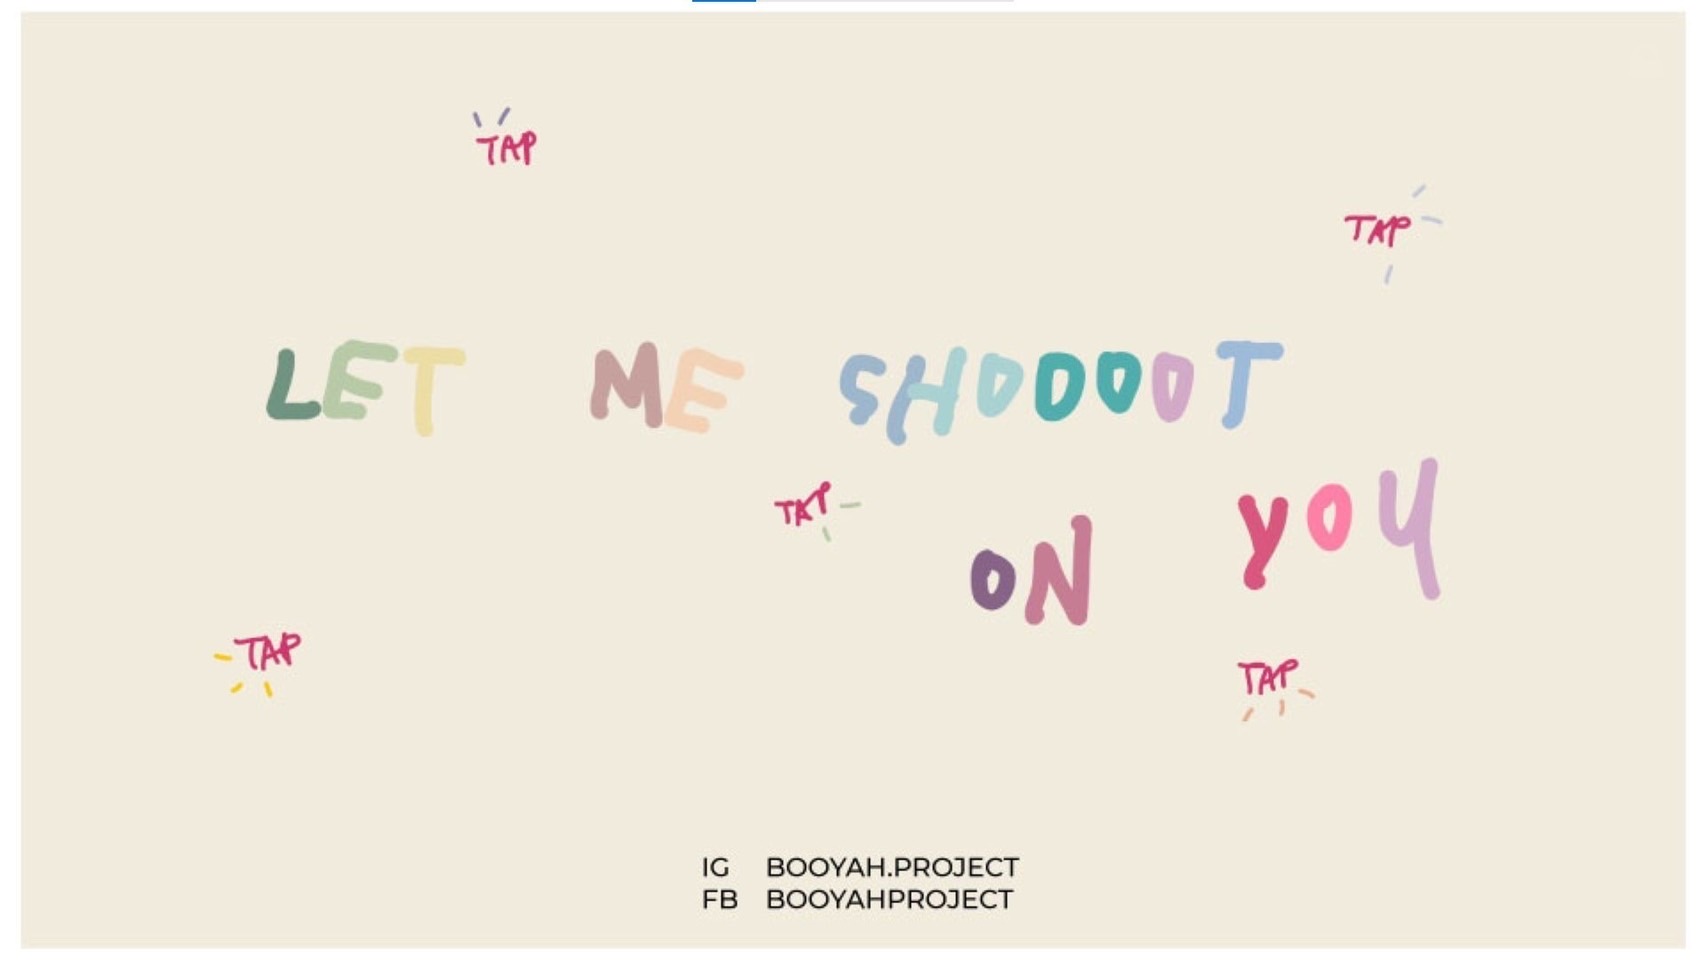 TAP
TAP
LET ME SHOOOOT
TAP
ON YOU
TAP
TAP
IG BOOYAH.PROJECT
FB BOOYAHPROJECT